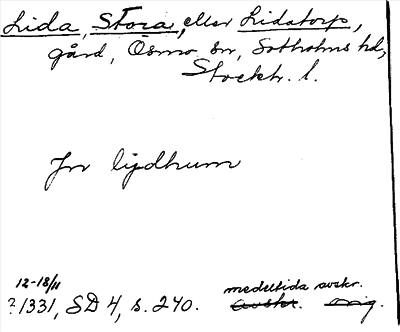 Lida, Stora, eller Lidatorp,
gård, Ösmo sn, Sotholms hd,
Stockh. l.
Jn lijdhum
12-18/11
?1331, SD 4, s. 240. medeltida avskr.
avskr. orig.